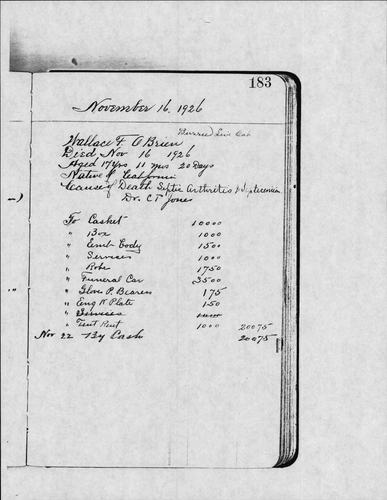 183
November 16, 1926
Burried
Wallace F O Brien
Died Nov 16 1926
Aged 17 yrs 11 mos 20 Days
Native of California
Cause of Death Septic Arthritis & Septicemia
Dr. C T Jones
To Casket 10000
" Box 1000
" Emb Body 1500
" Services 1000
" Robe 1750
" Funeral Car 3500
" Gloves P. Bearers 175
" Eng N Plate 150
" Services
" Tent Rent 1000 20075
Nov 22 By Cash 20075